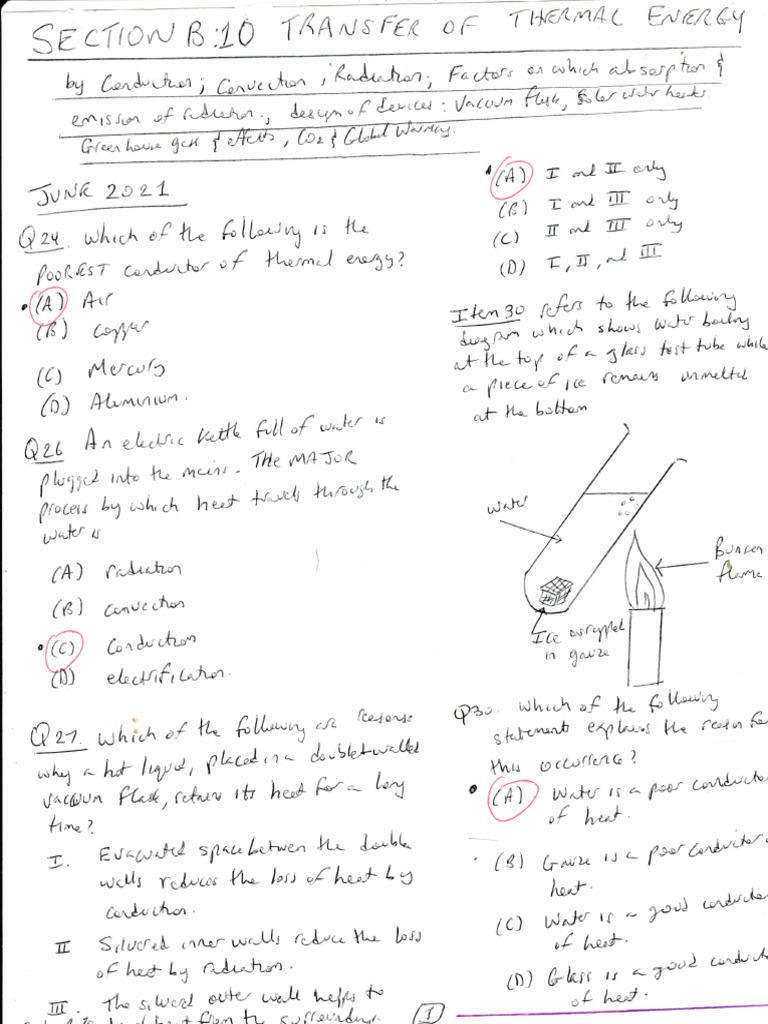 SECTION B:10 TRANSFER OF THERMAL ENERGY
by Conduction; Convection; Radiation; Factors on which absorption &
emission of radiation; design of devices: Vacuum flask, Solar water heaters
Greenhouse gas & effects, CO2 & Global Warming.
JUNE 2021
Q24. Which of the following is the
POOREST conductor of thermal energy?
(A) Air
(B) Copper
(C) Mercury
(D) Aluminium.
Q26 An electric kettle full of water is
plugged into the mains. The MAJOR
process by which heat travels through the
water is
(A) radiation
(B) convection
(C) Conduction
(D) electrification.
Q27. Which of the following are reasons
why a hot liquid, placed in a double-walled
vacuum flask, retains its heat for a long
time?
I. Evacuated space between the double
walls reduces the loss of heat by
conduction.
II Silvered inner walls reduce the loss
of heat by radiation.
III. The silvered outer wall helps to
heat from the surroundings.
(A) I and II only
(B) I and III only
(C) II and III only
(D) I, II, and III
Item 30 refers to the following
diagram which shows water boiling
at the top of a glass test tube while
a piece of ice remains unmelted
at the bottom
water
Bunsen
flame
Ice wrapped
in gauze
Q30. Which of the following
statements explains the reason for
this occurrence?
(A) Water is a poor conductor
of heat.
(B) Gauze is a poor conductor o
heat.
(C) Water is a good conductor
of heat.
(D) Glass is a good conduct
of heat.
1